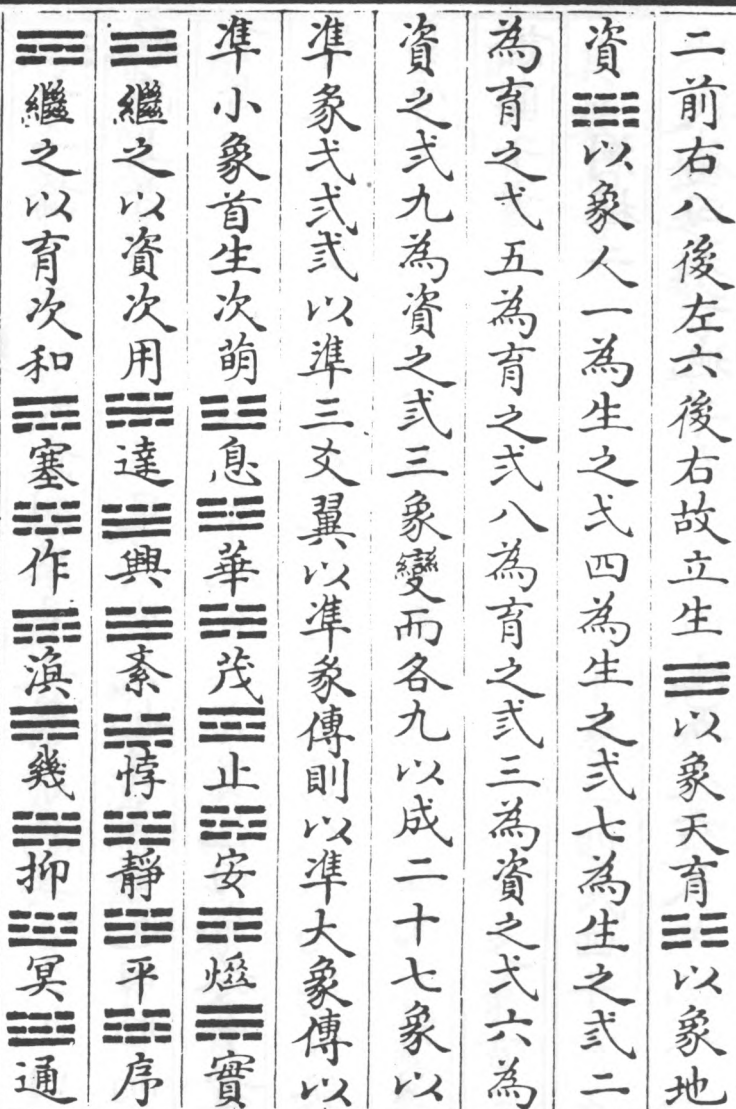 二前右八後左六後右故立生☰以象天育☷以象地
資以象人一為生之弌四為生之弍七為生之弎二
為育之弌五為育之弍八為育之弎三為資之弌六為
資之弍九為資之弎三象變而各九以成二十七象以
凖彖弌弍弎以凖三爻翼以凖彖傳則以凖大象傳以
凖小象首生次萌息華茂止安實
繼之以資次用達興紊悖靜平序
繼之以育次和塞作渙幾抑冥通